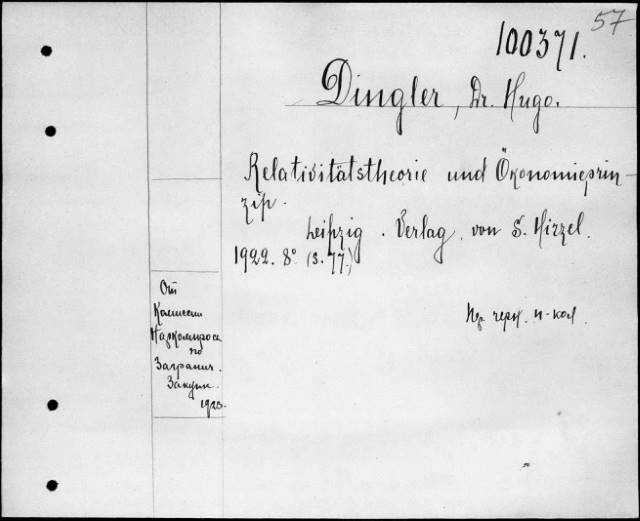 57
100371.
Dingler, Dr. Hugo.
Relativitätstheorie und Ökonomieprin-
zip.
Leipzig. Verlag von S. Hirzel.
1922. 8° (S. 77.)
От
Комиссии
Наркомпроса
по
Загранич.
Закупк.
1923.